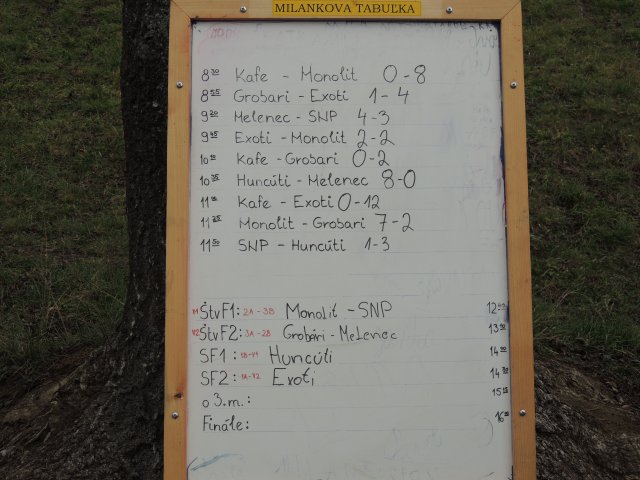 MILANKOVA TABUĽKA
8³⁰ Kafe - Monolit 0-8
8⁵⁵ Grobari - Exoti 1-4
9²⁰ Melenec - SNP 4-3
9⁴⁵ Exoti - Monolit 2-2
10¹⁰ Kafe - Grobari 0-2
10³⁵ Huncúti - Melenec 8-0
11⁰⁰ Kafe - Exoti 0-12
11²⁵ Monolit - Grobari 7-2
11⁵⁰ SNP - Huncúti 1-3
ŠtvF1: 2A - 3B Monolit - SNP 12
ŠtvF2: 3A - 2B Grobári - Melenec 13
SF1: 1B-V1 Huncúti 14
SF2: 1A-V2 Exoti 14
o 3.m.: 15
Finále: 16